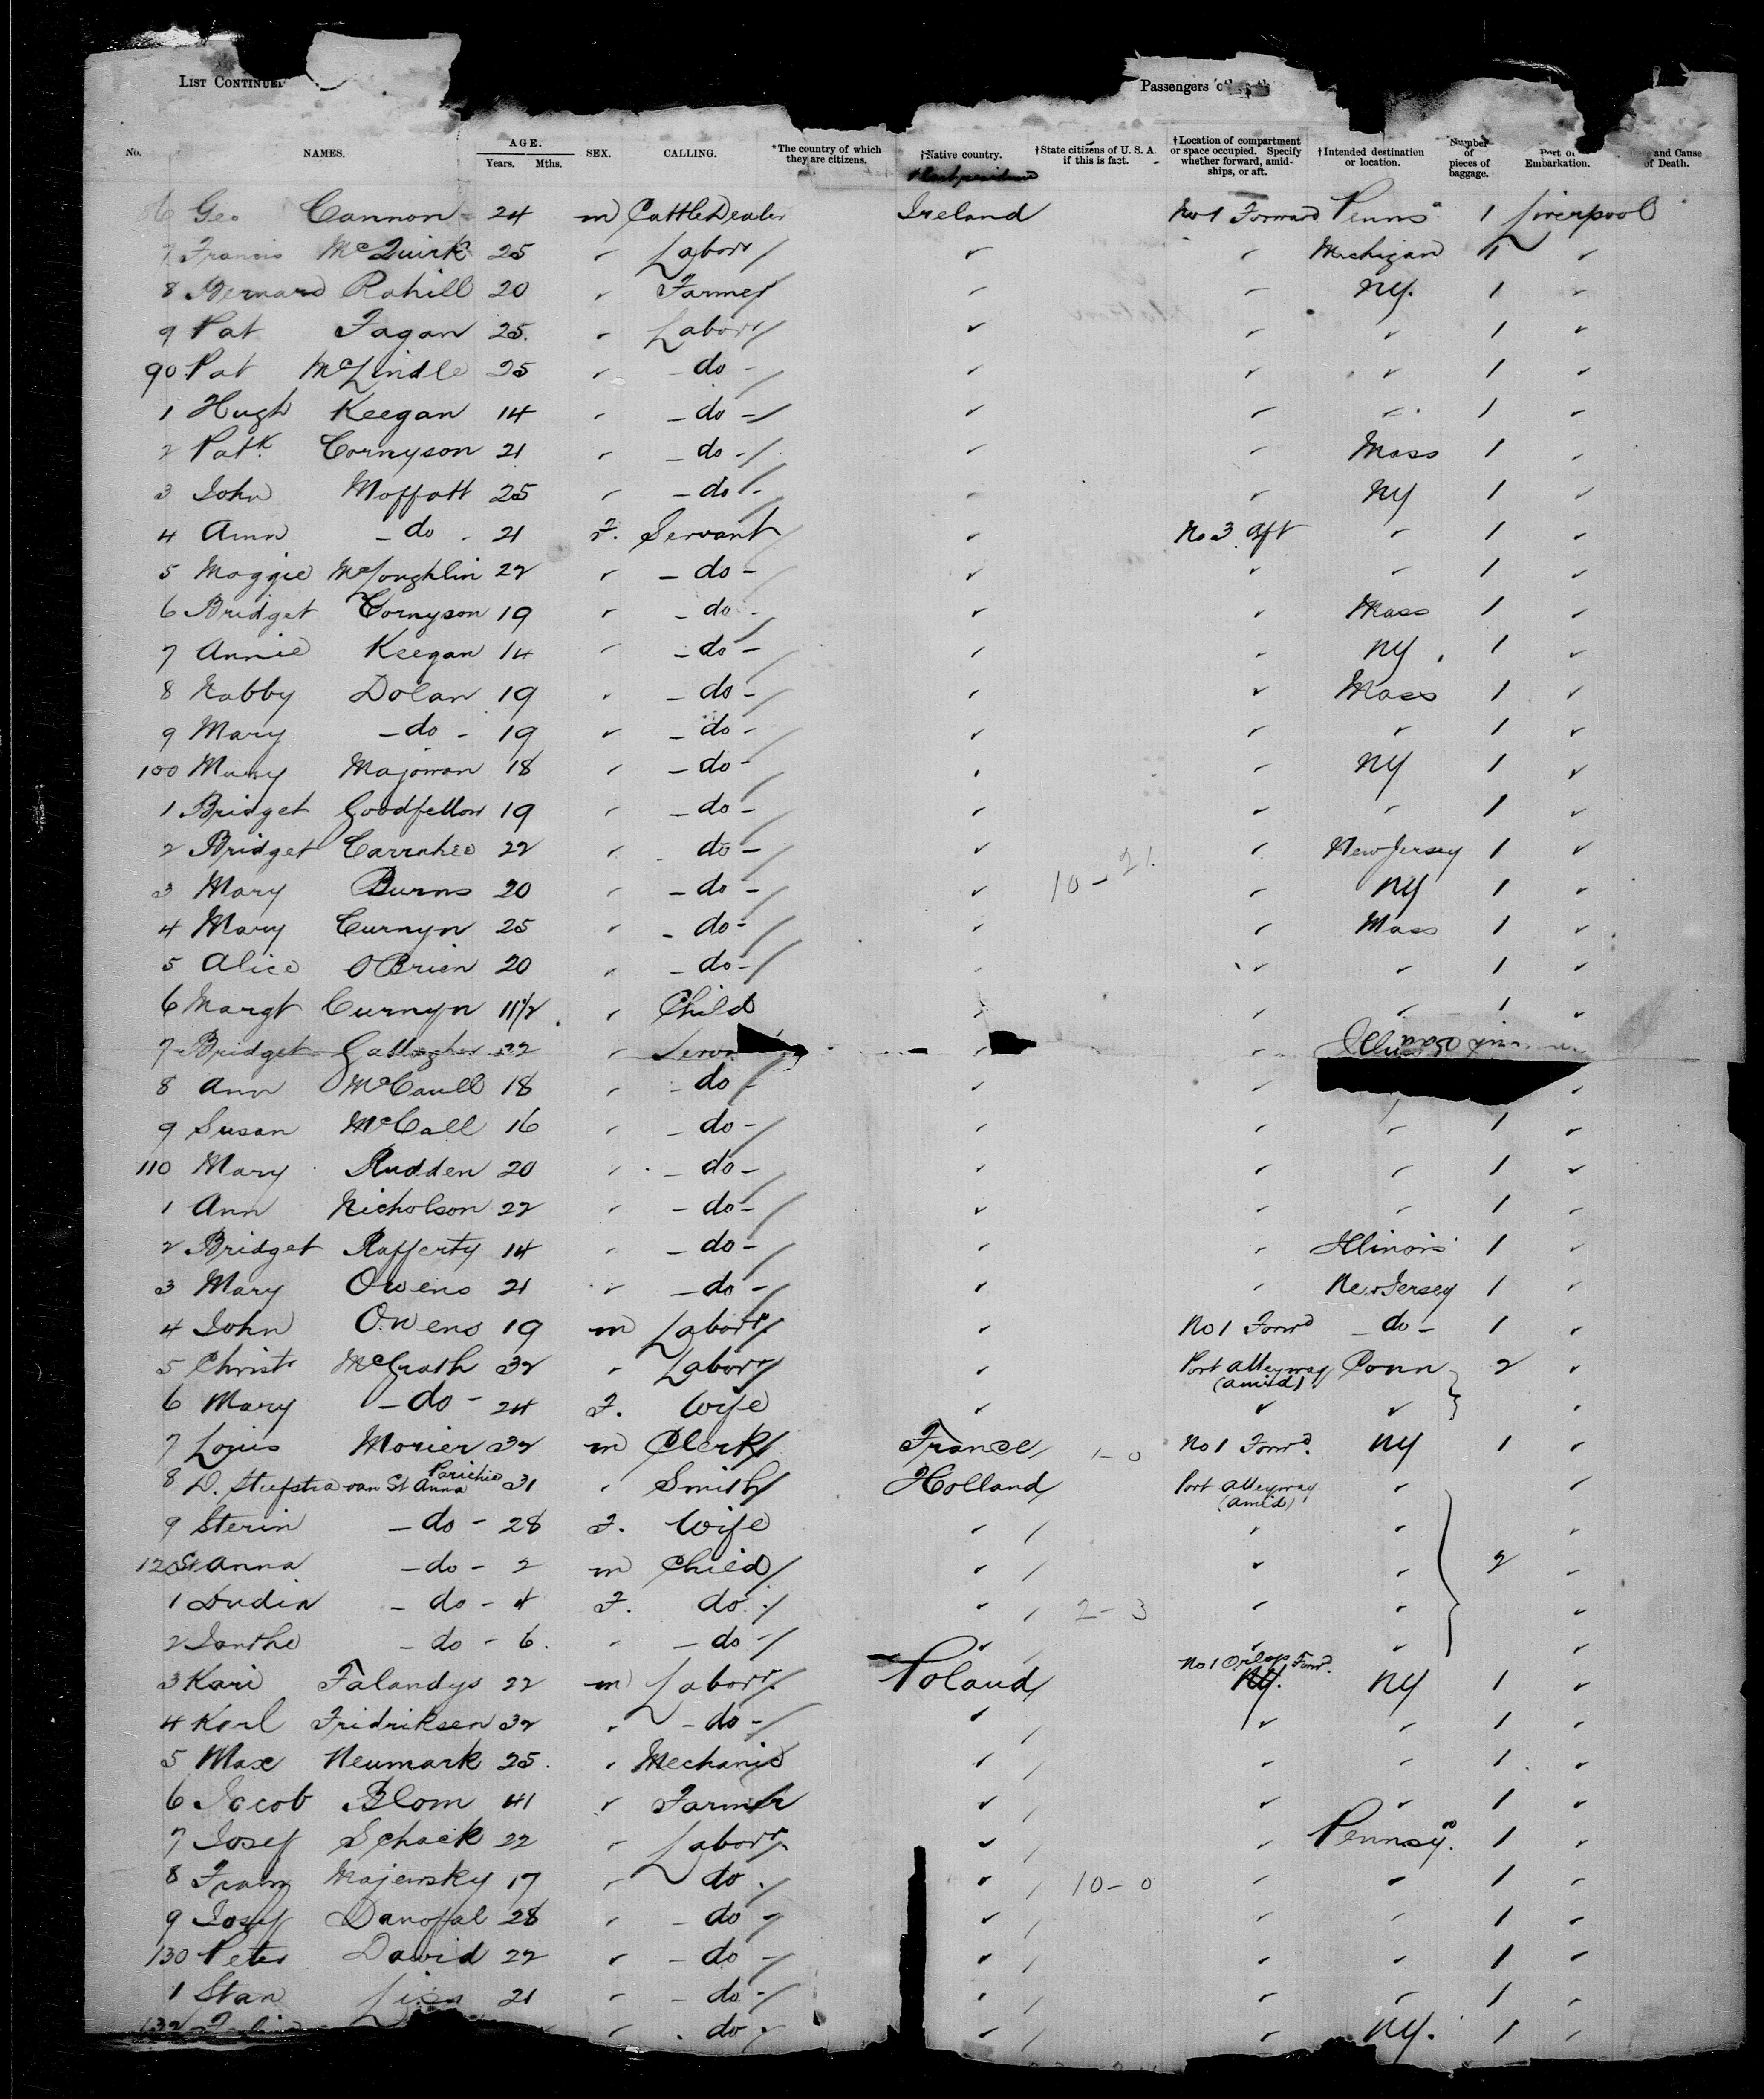 LIST CONTINUED Passengers of th
No. NAMES. AGE. Years. Mths. SEX. CALLING. *The country of which they are citizens. †Native country. †State citizens of U. S. A. if this is fact. †Location of compartment or space occupied. Specify whether forward, amid-ships, or aft. †Intended destination or location. Number of pieces of baggage. Port of Embarkation. and Cause of Death.
86 Geo Cannon 24 m Cattle Dealer Ireland No 1 Forward Penns 1 Liverpool
7 Francis McQuirk 25 " Labor " " Michigan 1 "
8 Bernard Rahill 20 " Farmer " " NY. 1 "
9 Pat Fagan 25. " Labor " " " 1 "
90 Pat McLindle 25 " - do - " " " 1 "
1 Hugh Keegan 14 " - do - " " " 1 "
2 Patk Cornyson 21 " - do - " " Mass 1 "
3 John Moffatt 25 " - do - " " NY 1 "
4 Ann - do - 21 F. Servant " No 3 Aft " 1 "
5 Maggie McLoughlin 22 " - do - " " " 1 "
6 Bridget Cornyson 19 " - do - " " Mass 1 "
7 Annie Keegan 14 " - do - " " NY 1 "
8 Nabby Dolan 19 " - do - " " Mass 1 "
9 Mary - do - 19 " - do - " " " 1 "
100 Mary Majowan 18 " - do - " " NY 1 "
1 Bridget Goodfellow 19 " - do - " " " 1 "
2 Bridget Carraher 22 " do - " " New Jersey 1 "
3 Mary Burns 20 " - do - " 10 - 21 " NY 1 "
4 Mary Curnyn 25 " - do - " " Mass 1 "
5 Alice OBrien 20 " - do - " " " 1 "
6 Margt Curnyn 11½ " Child " " " 1 "
7 Bridget Gallagher 22 " Serv " "
8 Ann McCaull 18 " - do - " " "
9 Susan McCall 16 " - do - " " " 1 "
110 Mary Rudden 20 " - do - " " " 1 "
1 Ann Nicholson 22 " - do - " " " 1 "
2 Bridget Rafferty 14 " - do - " " Illinois 1 "
3 Mary Owens 21 " - do - " " New Jersey 1 "
4 John Owens 19 m Labor " No 1 Forwd - do - 1 "
5 Christr McGrath 32 " Labor " Port alleyway (amid) Conn 2 "
6 Mary - do - 24 F. Wife " " " "
7 Louis Morier 32 m Clerk France 1 - 0 No 1 Forwd. NY 1 "
8 D. Stiefstra van St Anna Parichie 31 " Smith Holland Port alleyway (amid) " "
9 Sterin - do - 28 F. Wife " " " "
120 St Anna - do - 2 m Child " " " 2 "
1 Dudin - do - 4 F. do " 2 - 3 " " "
2 Ianthe - do - 6. " - do - " " " "
3 Kari Falandys 22 m Labor Poland No 1 Orlop Forwd. NY. NY 1 "
4 Karl Fridriksen 32 " - do - " " " 1 "
5 Max Neumark 25. " Mechanic " " " 1 "
6 Jacob Blom 41 " Farmer " " " 1 "
7 Josef Schack 22 " Labor " " Pennsy. 1 "
8 Franz Majewsky 17 " do " 10 - 0 " " 1 "
9 Josef Danofal 28 " - do - " " " 1 "
130 Peter David 22 " - do - " " " 1 "
1 Stan Liss 21 " - do - " " " 1 "
132 " do " " " NY. 1 "